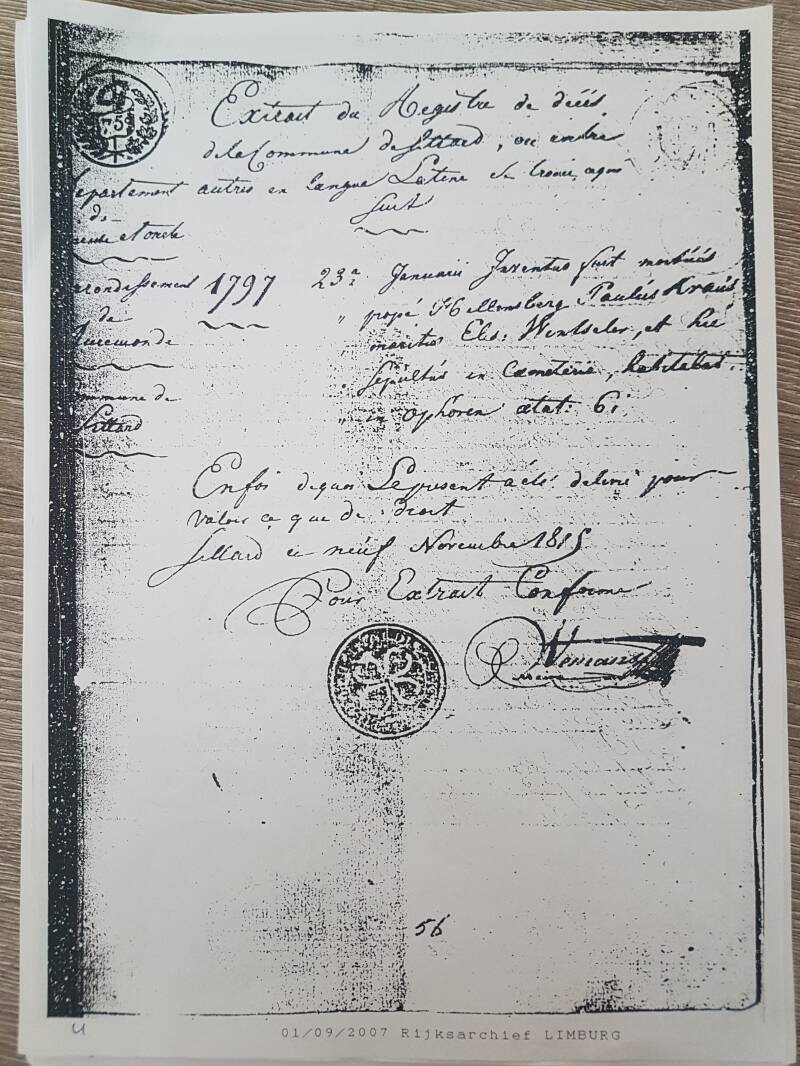 Extrait du Registre de décés
de la Commune de Sittard, ou entre
autres en langue Latine est trouvé, ce qui
suit
epartement
de
euse et ourte
arondissement
de
Ruremonde
ommune de
Sittard
1797 23ª Januarii Inventus fuit mortuús
" propé Hillensberg Paulús Kraús
" maritus Elis: Wintseler, et hic
" sepultús in Cœmeterio, habitabat
" in ophoven ætat: 61
En foi de quoi Le present a été delivré pour
valoir ce que de droit
Sittard ce neuf Novembre 1815
Pour Extrait Conforme
56
4
01/09/2007 Rijksarchief LIMBURG